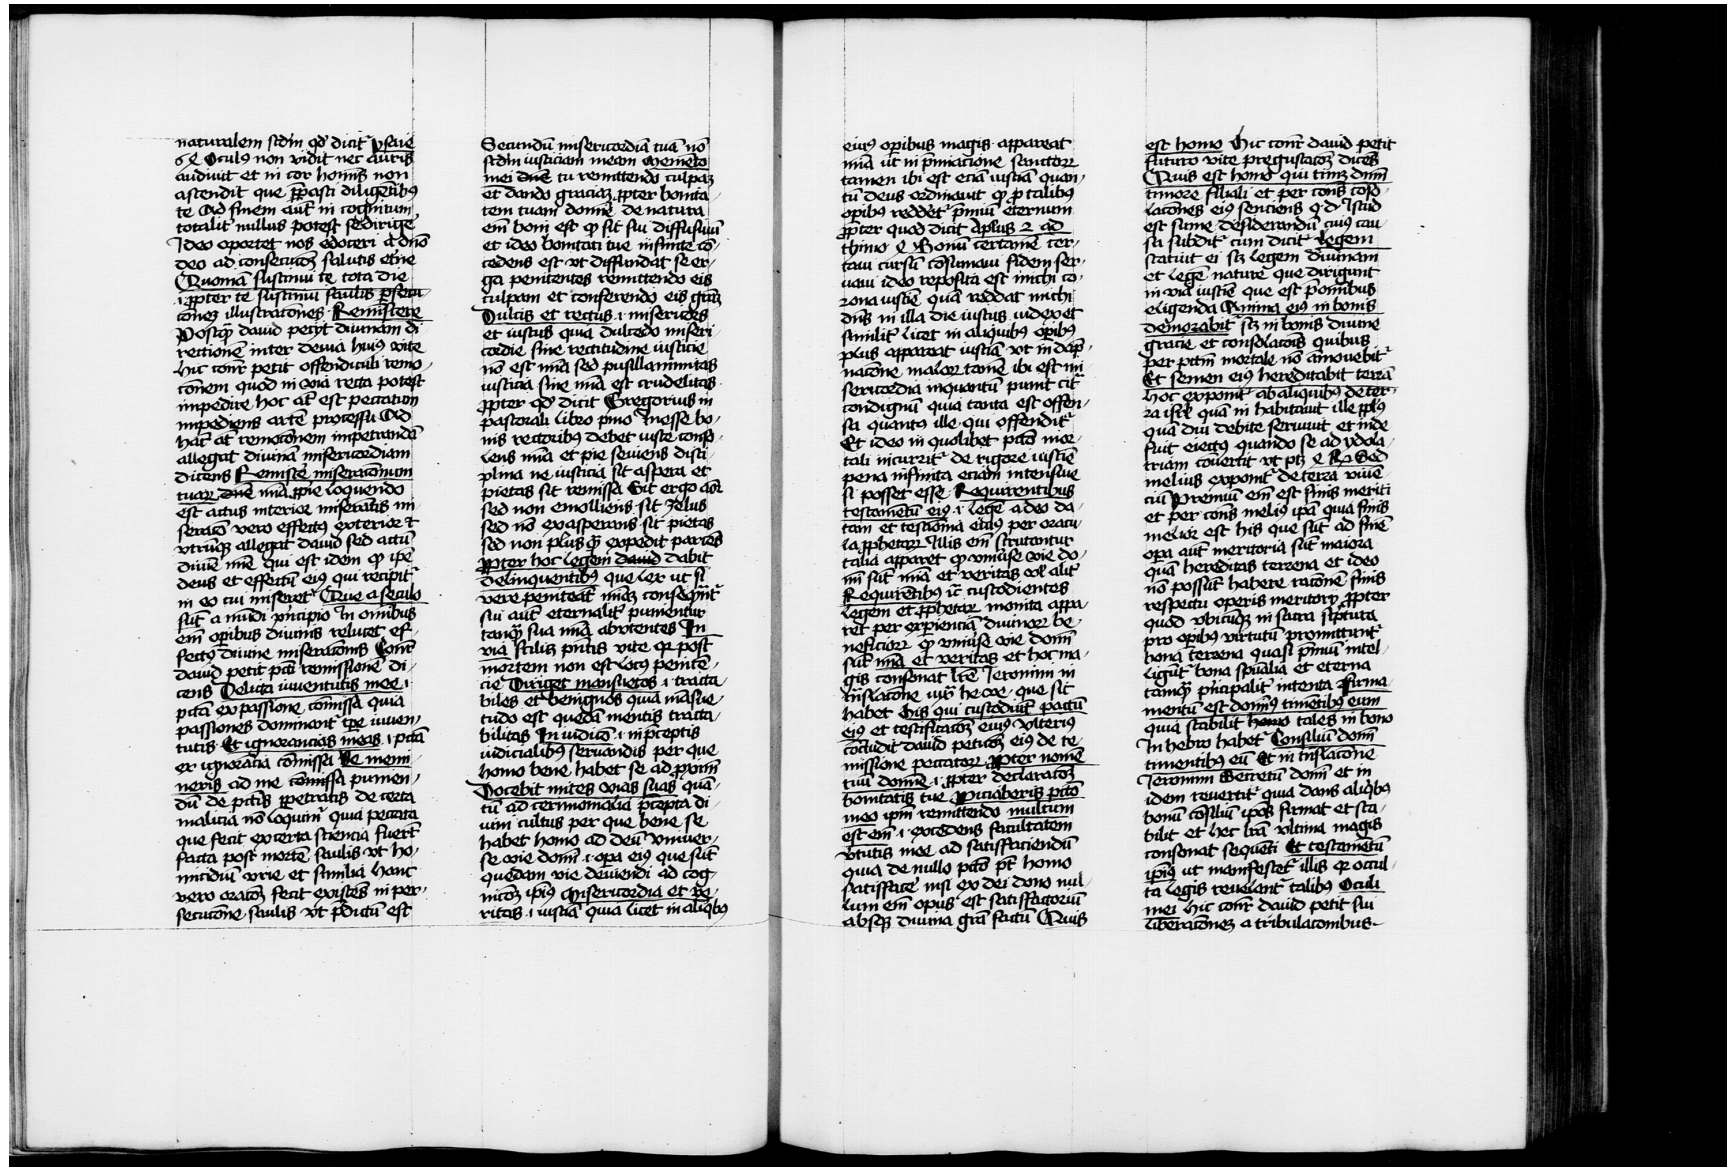 naturalem scdm qd dicit ysaie
64 Oculus non vidit nec auris
audiuit et in cor hominis non
ascendit que preparasti diligentibus
te Ad finem aut in cognitum
totalit nullus potest se dirige
Ideo oportet nos edoceri a dno
deo ad consecucoem salutis eterne
Quoniam sustinui te tota die
.i. propter te sustinui saulis persecu
cones illustracones Reminiscere
Postquam dauid petiit diuinam di
rectionem inter deuia huius vite
hic conter petit offendiculi remo
conem quod in via recta potest
impedire hoc at est peccatum
impediens arte processu Ad
hac at remoconem impetrandam
allegat diuinam misericordiam
dicens Reminiscere miseraconum
tuarum dne mia proprie loquendo
est actus interior miserantis mi
seracio vero effectus exterior et
vtrumque allegat dauid sed actum
diuine mie qui est idem quod ipse
deus et effectum eius qui recipit
in eo cui miseret Que a seculo
sunt a mundi principio In omnibus
enim operibus diuinis relucet ef
fectus diuine miseraconis Conter
dauid petit pcti remissionem di
cens Delicta iuuentutis mee .i.
pcta ex passione comissa quia
passiones dominant tpe iuuen
tutis Et ignorancias meas .i. pcta
ex ignorancia comissa Ne memi
neris ad me comissa punien
dum de pctis perpetratis de certa
malicia no loquimur quia peccata
que fecit ex certa sciencia fuerunt
facta post mortem saulis vt ho
micidium vrie et similia hanc
vero oracoem fecit existens in per
secucone saulis vt predictum est
Secundum misericordiam tuam no
scdm iusticiam meam memento
mei dne tu remittendo culpam
et dando graciam propter bonita
tem tuam domine de natura
enim boni est quod sit sui diffusiuum
et ideo bonitati tue infinite co
cedens est vt diffundat se er
ga penitentes remittendo eis
culpam et conferendo eis gram
Dulcis et rectus .i. misericors
et iustus quia dulcedo miseri
cordie sine rectitudine iusticie
no est mia sed pusillanimitas
iusticia sine mia est crudelitas
propter quod dicit Gregorius in
pastorali libro primo Inesse bo
nis rectoribus debet iuste conso
lens mia et pie seuiens disci
plina ne iusticia sit aspera et
pietas sit remissa Sit ergo amor
sed non emolliens sit zelus
sed no exasperans sit pietas
sed non plus quam expedit parcens
propter hoc legem dauid dabit
delinquentibus que lex ut si
vere peniteant miam consequantur
sin aut eternalit punientur
tanquam sua mia abutentes In
via scilicet pntis vite quia post
mortem non est locus peniten
cie Diriget mansuetos .i. tracta
biles et benignos quia mansue
tudo est quedam mentis tracta
bilitas In iudicio .i. in preceptis
iudicialibus seruandis per que
homo bene habet se ad proximum
Docebit mites vias suas quan
tum ad cerimonialia precepta di
uini cultus per que bene se
habet homo ad deum Vniuer
se vie domini .i. opera eius que sunt
quedam vie deuiendi ad cog
nicoem ipius Misericordia et ve
ritas .i. iusticia quia licet in aliquibus
eius opibus magis appareat
mia ut in pmiacione sanctorum
tamen ibi est etiam iusticia quan
tum deus ordinauit quod pro talibus
opibus reddet premium eternum
propter quod dicit Aplus 2 ad
thimo 4 Bonum certamen cer
taui cursum consumaui fidem ser
uaui ideo reposita est michi co
rona iusticie quam reddat michi
dns in illa die iustus iudex et
similit licet in aliquibus operibus
plus appareat iusticia vt in damp
nacione malorum tamen ibi est mi
sericordia inquantum punit citra
condignum quia tanta est offen
sa quantus ille qui offendit
Et ideo in quolibet pcto mor
tali incurrit de rigore iusticie
pena infinita etiam intensiue
si posset esse Requirentibus
testamentum eius .i. legem a deo da
tam et testimonia eius per oracu
la prophetarum Illis enim scrutantur
talia apparet quod vniuerse vie do
mini sunt mia et veritas vel aliter
Requirentibus id est custodientes
legem et prophetarum monita appa
ret per experienciam diuinorum be
neficiorum quod vniuerse vie domini
sunt mia et veritas et hoc ma
gis consonat lre Ieronimi in
translacone iuxta hebream que sic
habet his qui custodiunt pactum
eius et testificacoem eius Vlterius
cocludit dauid peticoem eius de re
missione peccatorum Propter nomen
tuum domine .i. propter declaracoem
bonitatis tue Propiciaberis pcto
meo ipm remittendo multum
est enim .i. excedens facultatem
virtutis mee ad satisfaciendum
quia de nullo pcto pt homo
satisfacere nisi ex dei dono nul
lum enim opus est satisfactorium
absque diuina gra factum Quis
est homo Hic conter dauid petit
futuro vite pregustacoem dicens
Quis est homo qui timet dnm
timore filiali et per cons conso
lacones eius senciens q.d. Istud
est sume desiderandum cuius cau
sa subdit cum dicit Legem
statuit ei scz legem diuinam
et legem nature que dirigunt
in via iusticie que est pre omnibus
eligenda Anima eius in bonis
demorabit scz in bonis diuine
gracie et consolaconis quibus
per pctm mortale no amouebit
Et semen eius hereditabit terram
hoc exponit ab aliquibus de ter
ra israel quam inhabitauit ille populus
quam diu debite seruiuit et inde
fuit eiectus quando se ad ydola
triam conuertit vt patet 4 R. Sed
melius exponit de terra viuen
cium Premium enim est finis meriti
et per cons melius ipsa quia finis
melior est his que sunt ad finem
opera aut meritoria sunt maiora
quam hereditas terrena et ideo
no possunt habere raconem finis
respectu operis meritorii propter
quod vbicumque in sacra scriptura
pro opibus virtutum promittuntur
bona terrena quasi premium intel
ligunt bona spiritualia et eterna
tamquam principalit intenta Firma
mentum est dominus timentibus eum
quia stabilit homo tales in bono
In hebreo habet Consilium domini
timentibus eum Et in translacone
Ieronimi Secretum domini et in
idem reuertit quia dans aliquibus
bonum consilium ipsos firmat et sta
bilit et hec lra vltima magis
consonat sequenti Et testamentum
ipius ut manifestet illis quia occul
ta legis reuelant talibus Oculi
mei Hic conter dauid petit sui
liberaconem a tribulaconibus